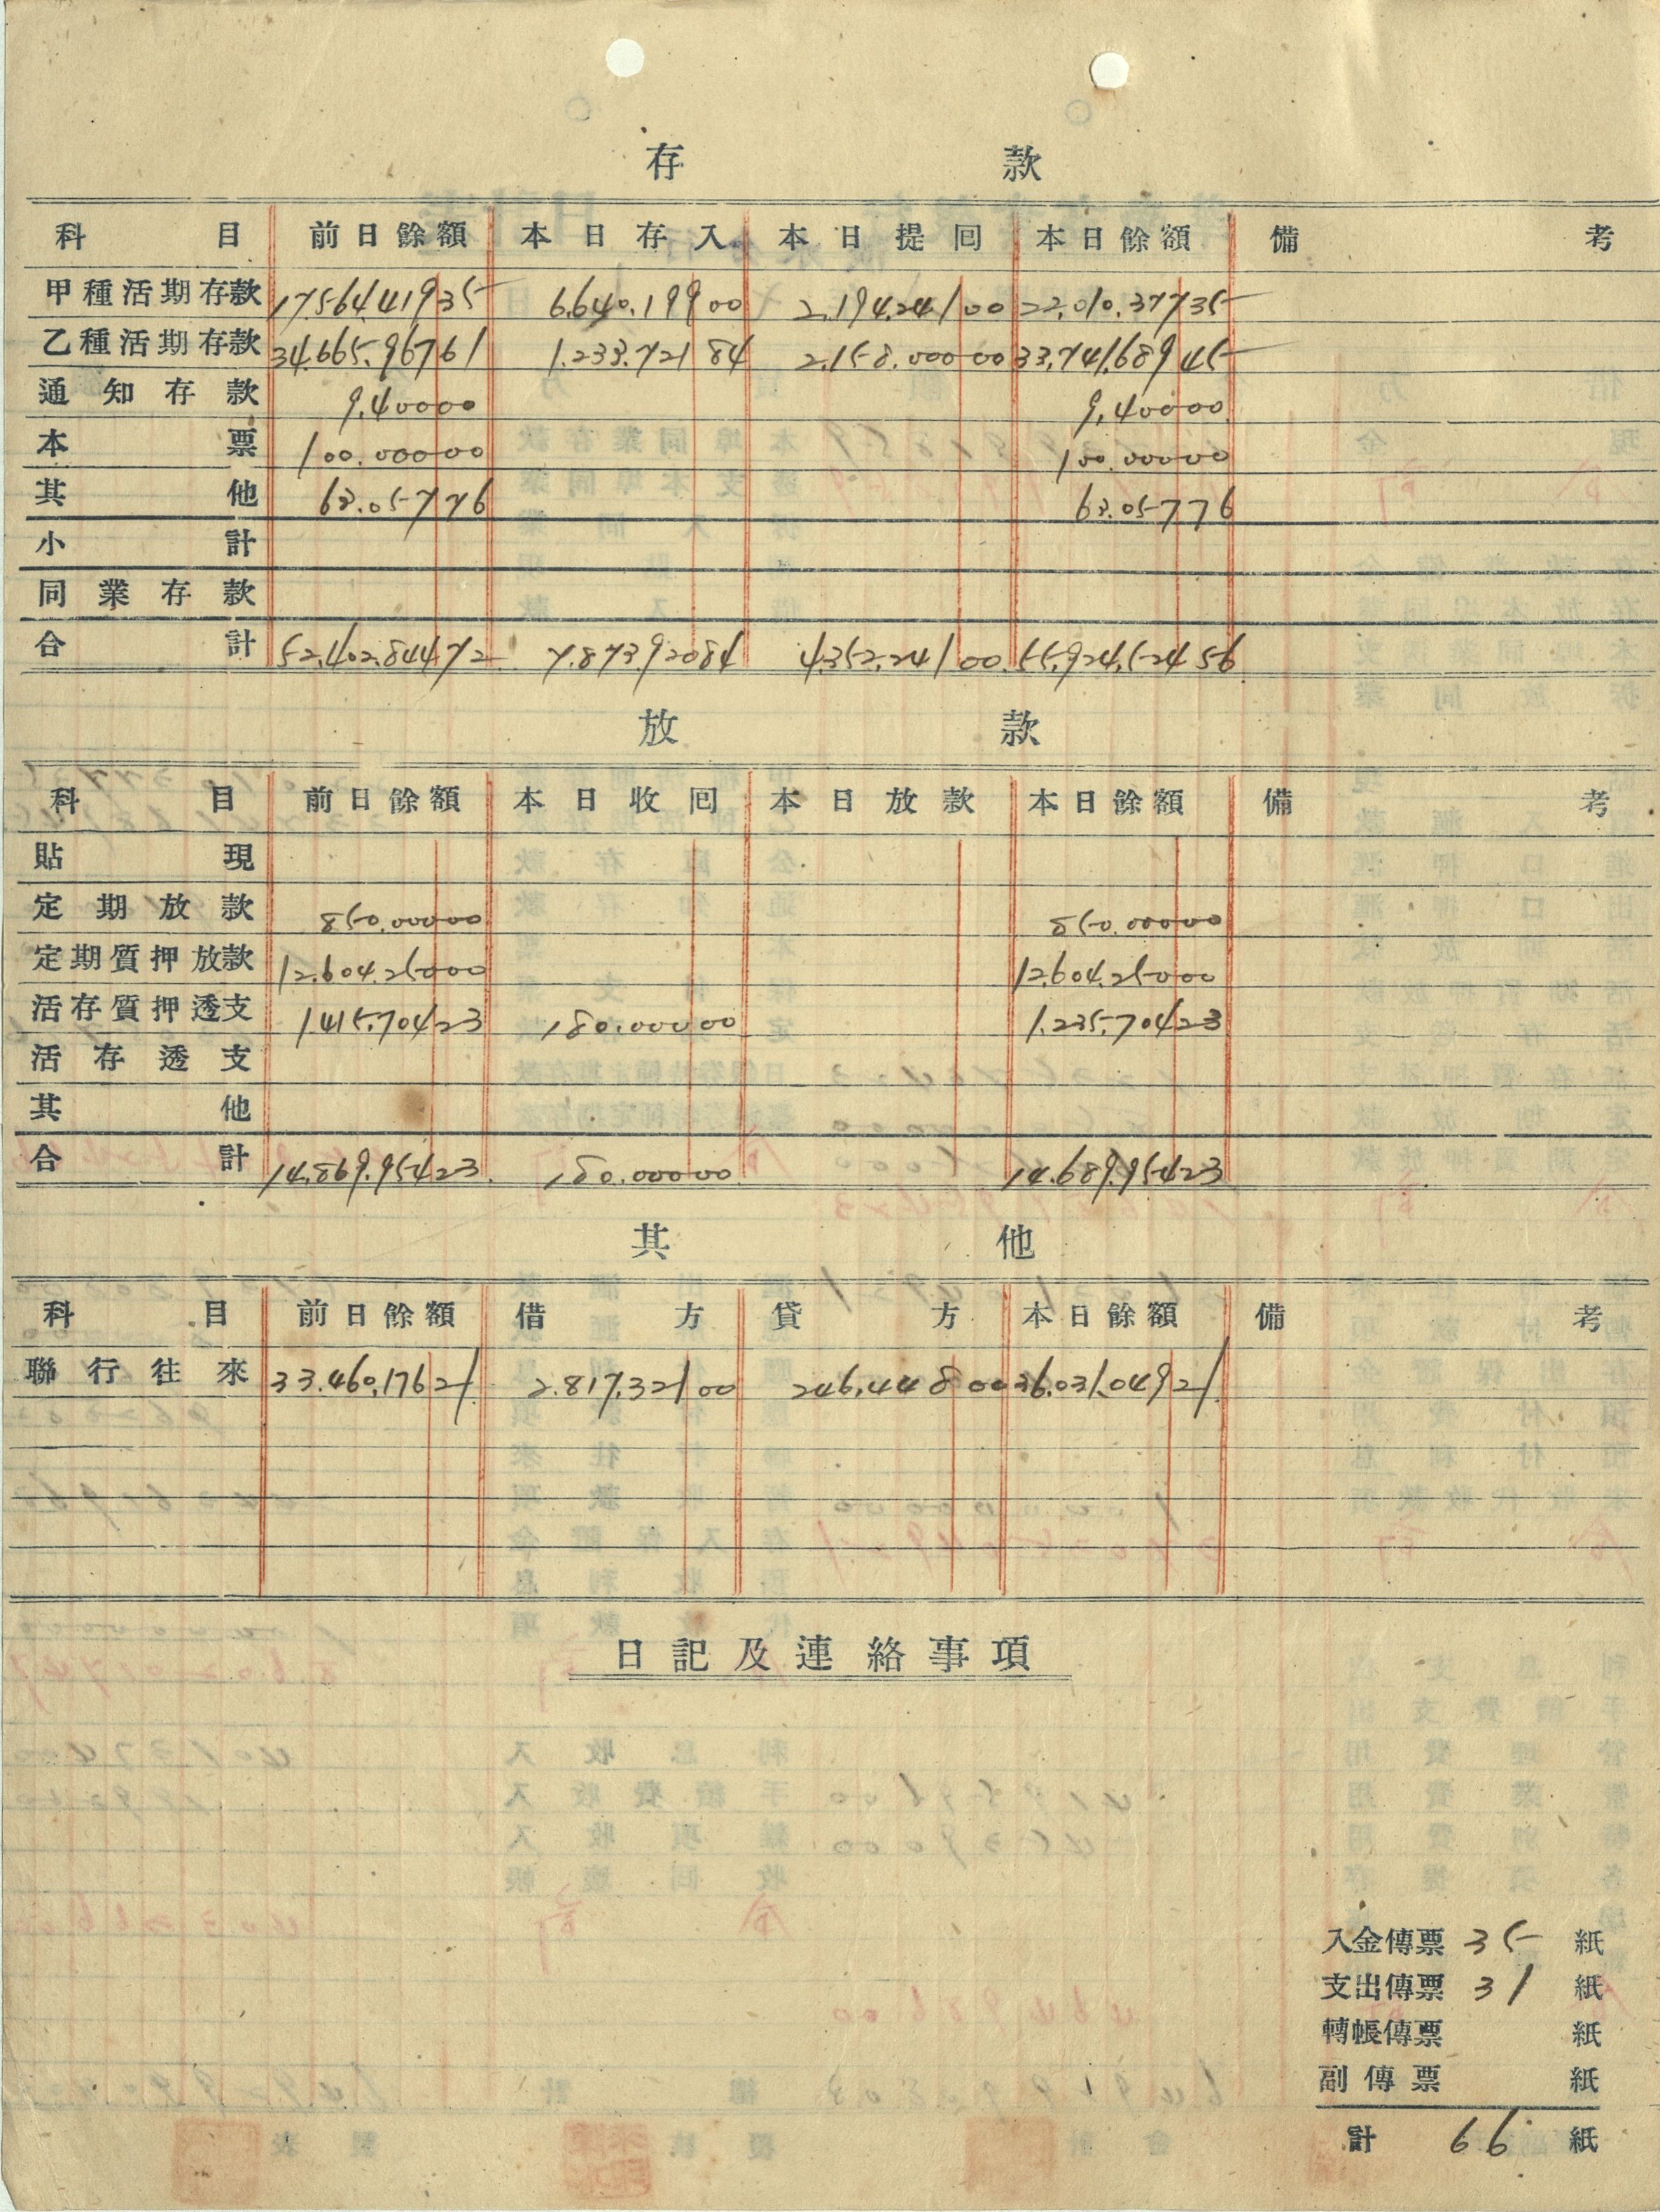 存 款
科目 前日餘額 本日存入 本日提囘 本日餘額 備考
甲種活期存款 17.564.419 35 6.640.199 00 2.194.241 00 22.010.377 35
乙種活期存款 34.665.967 61 1.233.721 84 2.158.000 00 33.741.689 45
通知存款 9.400 00 9.400 00
本票 100.000 00 100.000 00
其他 63.057 76 63.057 76
小計
同業存款
合計 52.402.844 72 7.873.920 84 4.352.241 00 55.924.524 56
放 款
科目 前日餘額 本日收囘 本日放款 本日餘額 備考
貼現
定期放款 850.000 00 850.000 00
定期質押放款 12.604.250 00 12.604.250 00
活存質押透支 1.415.704 23 180.000 00 1.235.704 23
活存透支
其他
合計 14.869.954 23 180.000 00 14.689.954 23
其 他
科目 前日餘額 借方 貸方 本日餘額 備考
聯行往來 33.460.176 21 2.817.321 00 246.448 00 36.031.049 21
日記及連絡事項
入金傳票 35 紙
支出傳票 31 紙
轉帳傳票 紙
副傳票 紙
計 66 紙